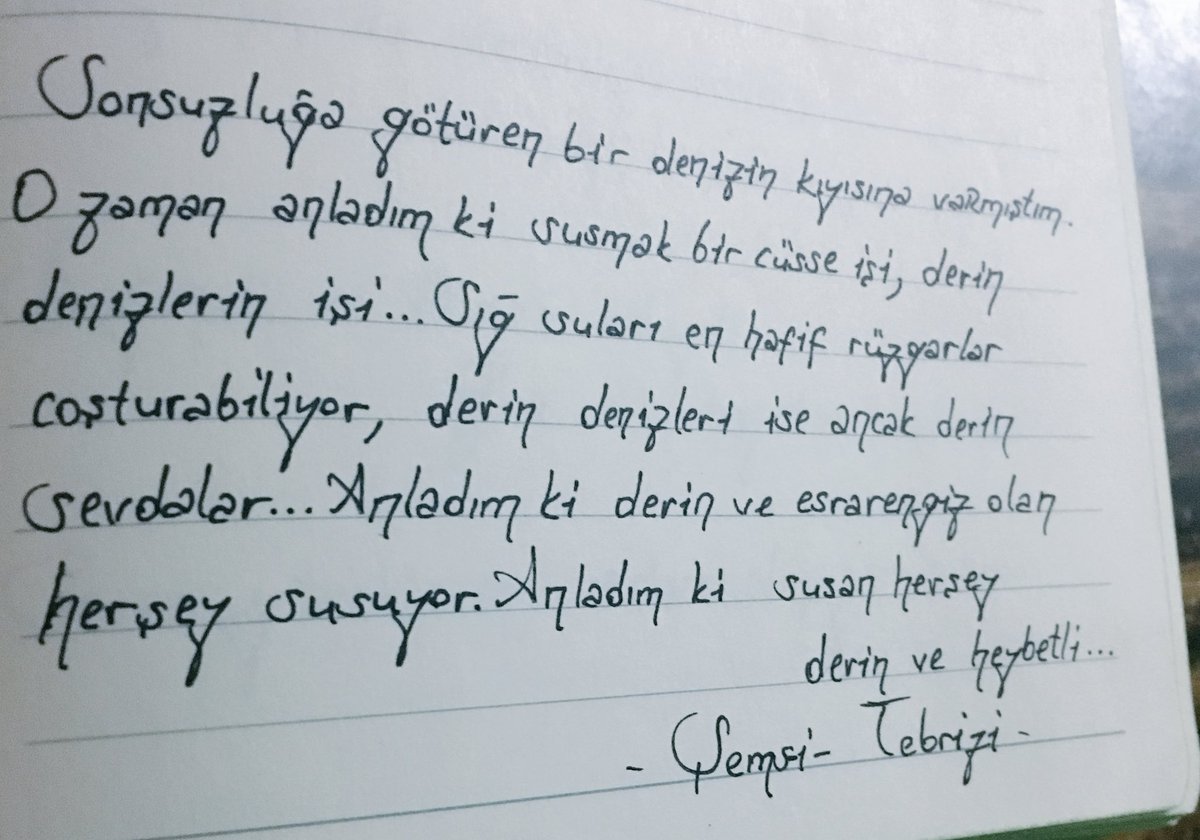 Sonsuzluğa götüren bir denizin kıyısına vaRmıştım.
O zaman anladım ki susmak bir cüsse işi, derin
denizlerin işi... Sığ suları en hafif rüzgarlar
coşturabiliyor, derin denizleri ise ancak derin
sevdalar... Anladım ki derin ve esrarengiz olan
herşey susuyor. Anladım ki susan herşey
derin ve heybetli...
- Şemsi- Tebrizi -